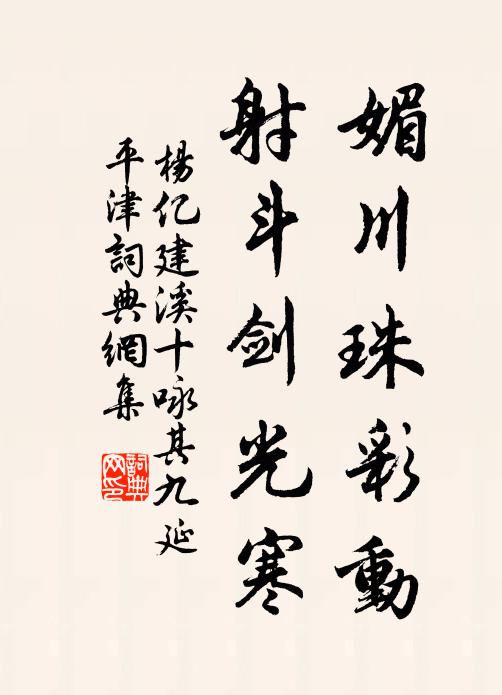 媚川珠彩動
射斗劍光寒
楊億建溪十咏其九延
平津詞典網集
詞典
网印